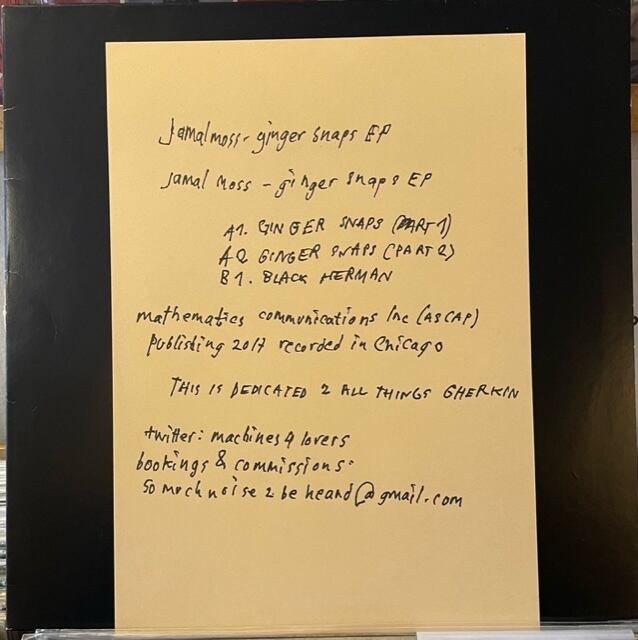 Jamal moss - ginger snaps EP
Jamal Moss - ginger snaps EP
A1. GINGER SNAPS (PART 1)
A2 GINGER SNAPS (PART 2)
B1. BLACK HERMAN
mathematics communications Inc (ASCAP)
publishing 2017 recorded in Chicago
THIS IS DEDICATED 2 ALL THINGS GHERKIN
twitter: machines 4 lovers
bookings & commissions:
so much noise 2 be heard@gmail.com